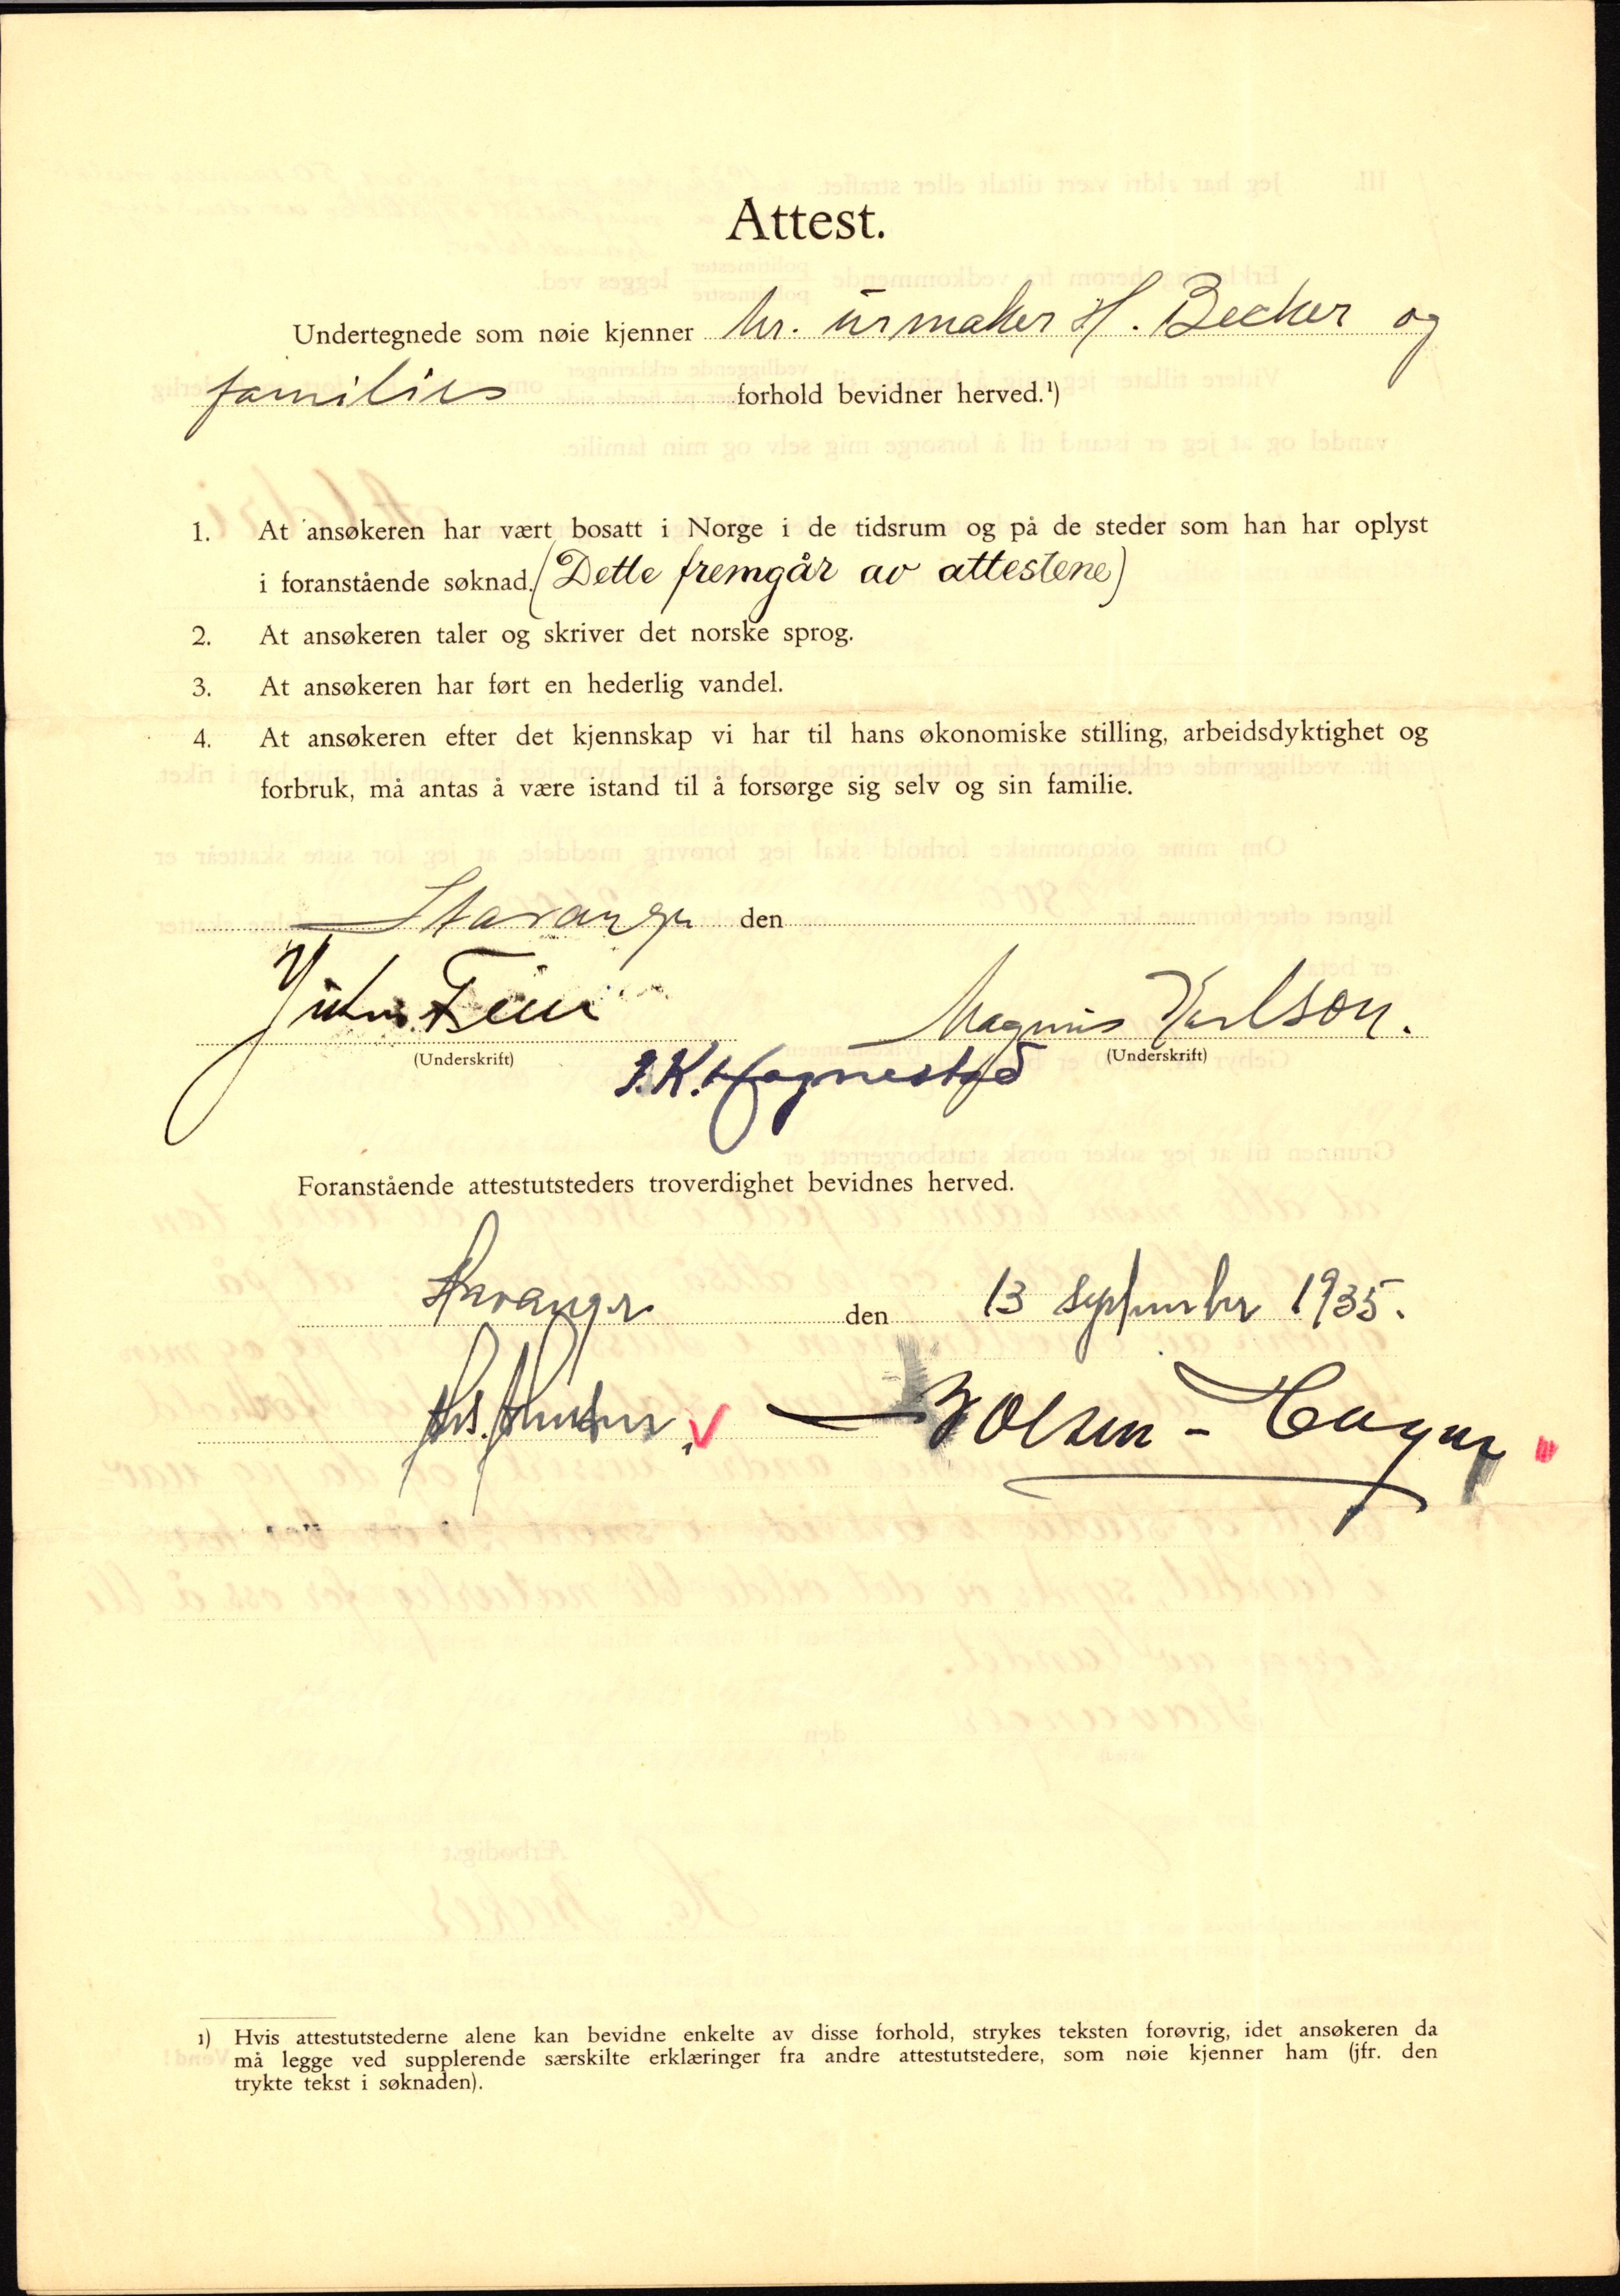 Attest.
Undertegnede som nøie kjenner hr. urmaker H. Becker og
families forhold bevidner herved.¹)
1. At ansøkeren har vært bosatt i Norge i de tidsrum og på de steder som han har oplyst
i foranstående søknad. (Dette fremgår av attestene)
2. At ansøkeren taler og skriver det norske sprog.
3. At ansøkeren har ført en hederlig vandel.
4. At ansøkeren efter det kjennskap vi har til hans økonomiske stilling, arbeidsdyktighet og
forbruk, må antas å være istand til å forsørge sig selv og sin familie.
Stavanger den
John Magnus Karlson.
(Underskrift) (Underskrift)
J.K. Hognestad
Foranstående attestutsteders troverdighet bevidnes herved.
Stavanger den 13 september 1935.
Olsen - Hagen
1) Hvis attestutstederne alene kan bevidne enkelte av disse forhold, strykes teksten forøvrig, idet ansøkeren da
må legge ved supplerende særskilte erklæringer fra andre attestutstedere, som nøie kjenner ham (jfr. den
trykte tekst i søknaden).